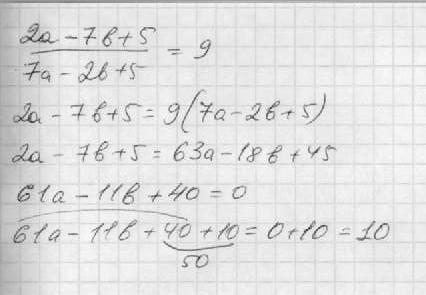 2a - 7b + 5
7a - 2b + 5
= 9
2a - 7b + 5 = 9(7a - 2b + 5)
2a - 7b + 5 = 63a - 18b + 45
61a - 11b + 40 = 0
61a - 11b + 40 + 10 = 0 + 10 = 10
50